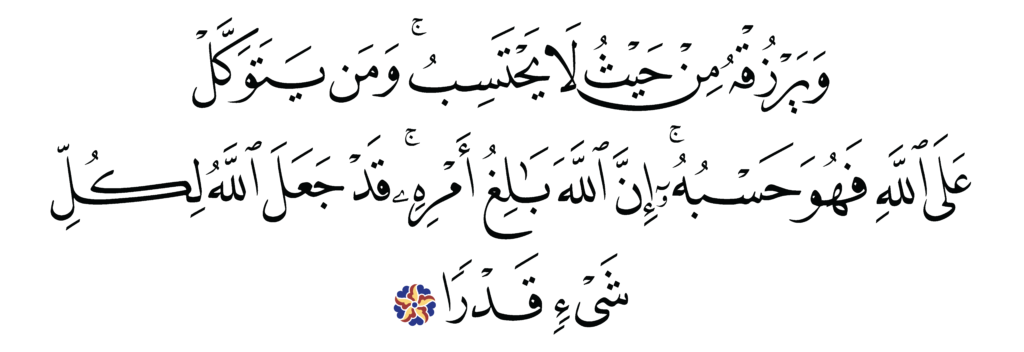 وَيَرْزُقْهُ مِنْ حَيْثُ لَا يَحْتَسِبُ ۚ وَمَن يَتَوَكَّلْ
عَلَى ٱللَّهِ فَهُوَ حَسْبُهُۥٓ ۚ إِنَّ ٱللَّهَ بَٰلِغُ أَمْرِهِۦ ۚ قَدْ جَعَلَ ٱللَّهُ لِكُلِّ
شَىْءٍ قَدْرًا